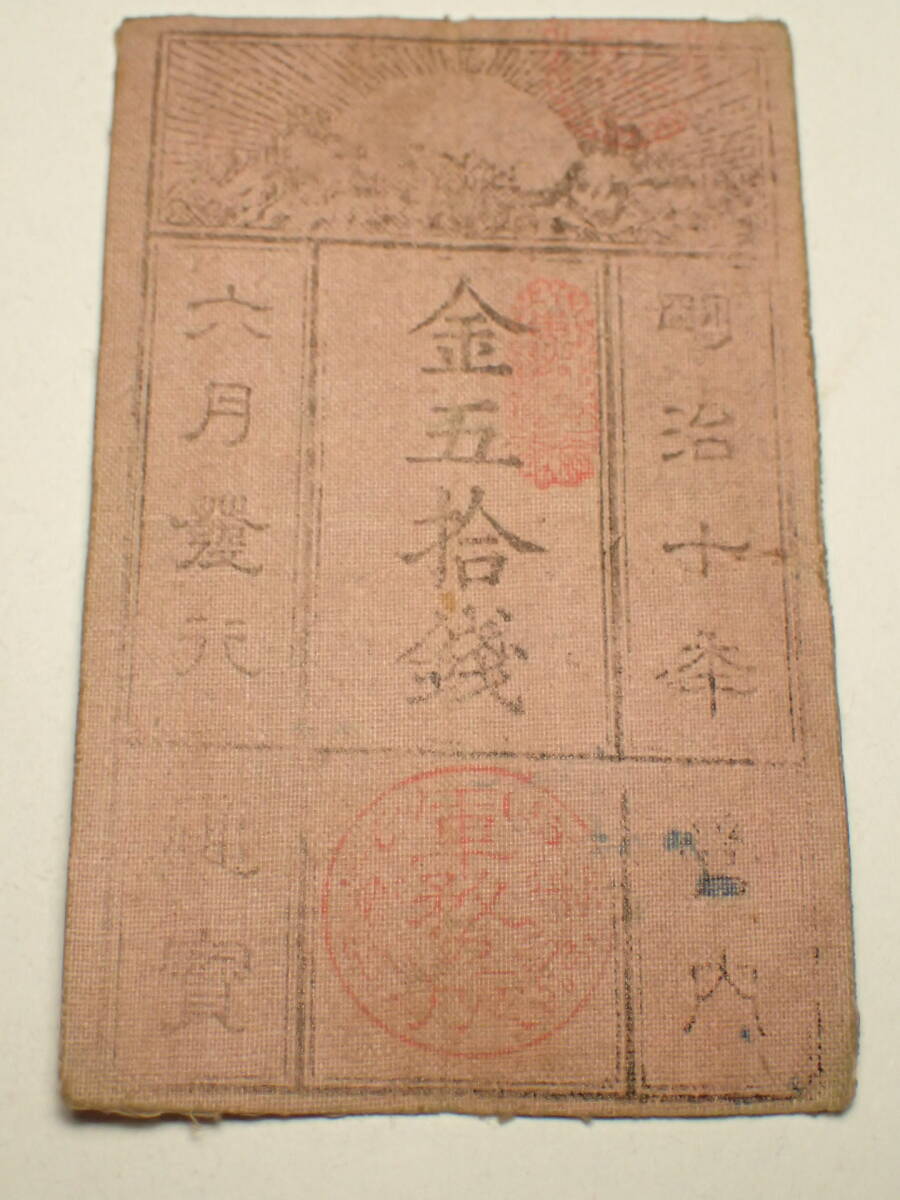 明治十年
金五拾錢
六月發行
管内
通寳
軍務所